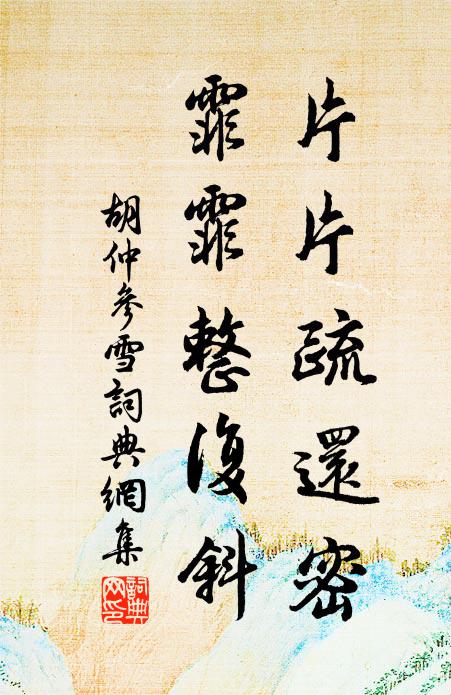 片片疏還密
霏霏整復斜
胡仲參雪詞典網集
詞典网印